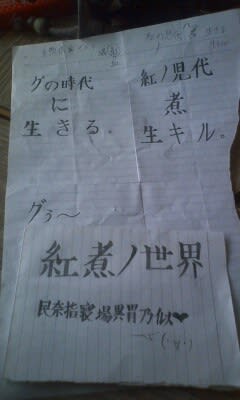 グの時代
に
生きる。
紅ノ児代
煮
生キル。
グぅ～
紅煮ノ世界
民奈指寝場異胃乃似❤